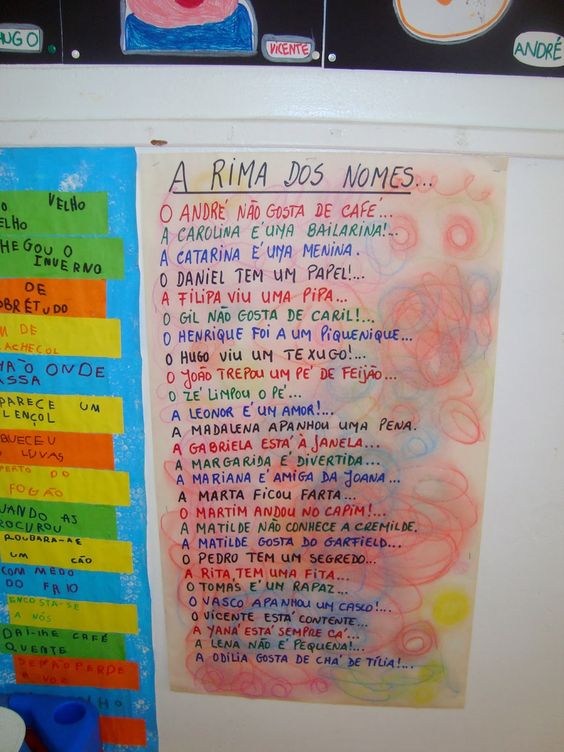 HUGO
VICENTE
ANDRÉ
A RIMA DOS NOMES...
O ANDRÉ NÃO GOSTA DE CAFÉ...
A CAROLINA É UMA BAILARINA!...
A CATARINA É UMA MENINA.
O DANIEL TEM UM PAPEL!...
A FILIPA VIU UMA PIPA...
O GIL NÃO GOSTA DE CARIL!...
O HENRIQUE FOI A UM PIQUENIQUE...
O HUGO VIU UM TEXUGO!...
O JOÃO TREPOU UM PÉ DE FEIJÃO...
O ZÉ LIMPOU O PÉ...
A LEONOR É UM AMOR!...
A MADALENA APANHOU UMA PENA.
A GABRIELA ESTÁ À JANELA...
A MARGARIDA É DIVERTIDA...
A MARIANA É AMIGA DA JOANA...
A MARTA FICOU FARTA...
O MARTIM ANDOU NO CAPIM!...
A MATILDE NÃO CONHECE A CREMILDE.
A MATILDE GOSTA DO GARFIELD...
O PEDRO TEM UM SEGREDO...
A RITA TEM UMA FITA...
O TOMÁS É UM RAPAZ...
O VASCO APANHOU UM CASCO!...
O VICENTE ESTÁ CONTENTE...
A YANÁ ESTÁ SEMPRE CÁ...
A LENA NÃO É PEQUENA!...
A ODÍLIA GOSTA DE CHÁ DE TÍLIA!...
O VELHO
HEGOU O
INVERNO
DE
DE
ONDE
PARECE UM
LENÇOL
LUVAS
DO
FOGÃO
UANDO AS
ROCUROU
ROUBARA-AS
UM CÃO
COM MEDO
DO FRIO
ENCOSTA-SE
A NÓS
DAI-LHE CAFÉ
QUENTE